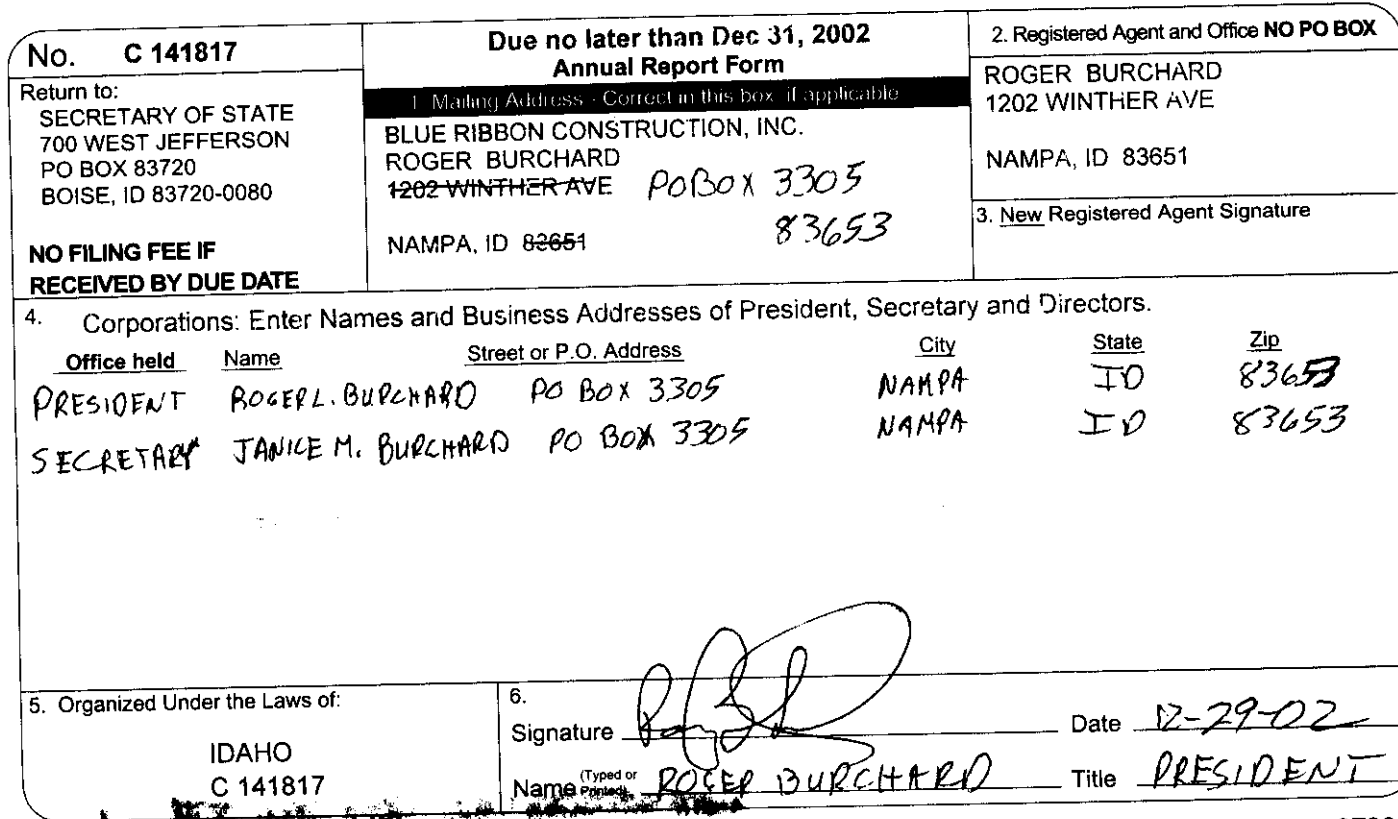 No. C 141817
Return to:
SECRETARY OF STATE
700 WEST JEFFERSON
PO BOX 83720
BOISE, ID 83720-0080
NO FILING FEE IF
RECEIVED BY DUE DATE
Due no later than Dec 31, 2002
Annual Report Form
1. Mailing Address - Correct in this box, if applicable
BLUE RIBBON CONSTRUCTION, INC.
ROGER BURCHARD
1202 WINTHER AVE PO BOX 3305
83653
NAMPA, ID 83651
2. Registered Agent and Office NO PO BOX
ROGER BURCHARD
1202 WINTHER AVE
NAMPA, ID 83651
3. New Registered Agent Signature
4. Corporations: Enter Names and Business Addresses of President, Secretary and Directors.
Office held Name Street or P.O. Address City State Zip
PRESIDENT ROGER L. BURCHARD PO BOX 3305 NAMPA ID 83653
SECRETARY JANICE M. BURCHARD PO BOX 3305 NAMPA ID 83653
5. Organized Under the Laws of:
IDAHO
C 141817
6.
Signature Date 12-29-02
Name (Typed or Printed) ROGER BURCHARD Title PRESIDENT